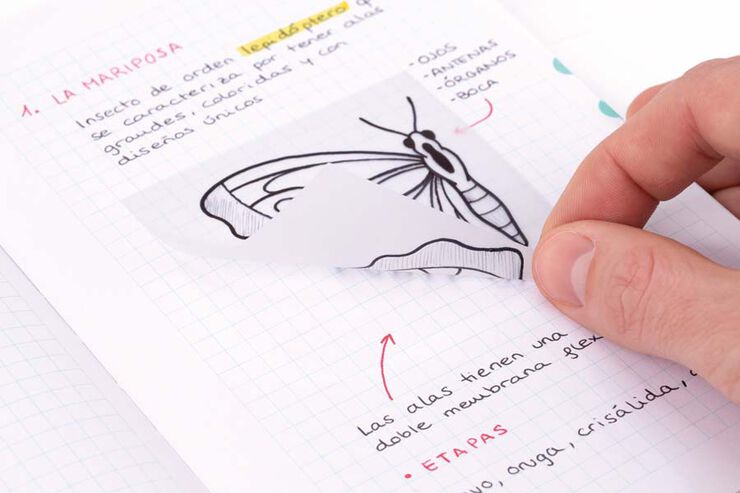 1. LA MARIPOSA
Insecto de orden lepidóptero q
se caracteriza por tener alas
grandes, coloridas y con
diseños únicos
-OJOS
-ANTENAS
-ÓRGANOS
-BOCA
Las alas tienen una
doble membrana flex
• ETAPAS
vo, oruga, crisálida,